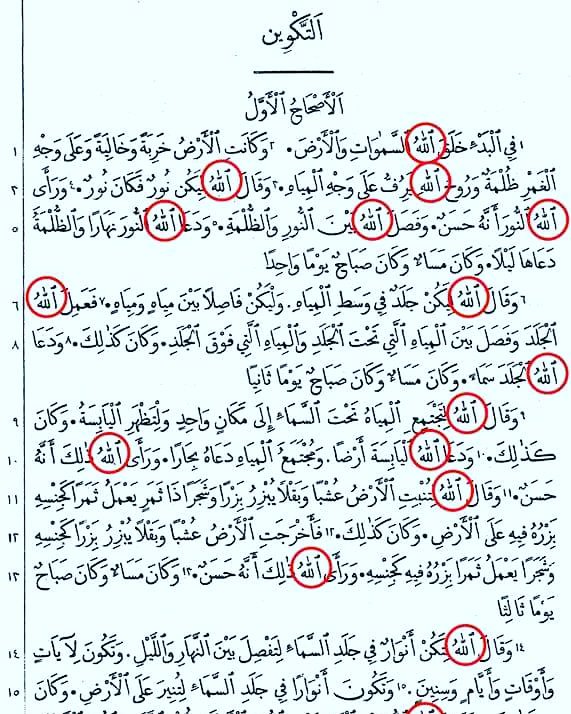 اَلتَّكْوِين
اَلْأَصْحَاحُ ٱلْأَوَّلُ
١ ١فِي ٱلْبَدْءِ خَلَقَ ٱللهُ ٱلسَّمٰوَاتِ وَٱلْأَرْضَ. ٢وَكَانَتِ ٱلْأَرْضُ خَرِبَةً وَخَالِيَةً وَعَلَى وَجْهِ
٢ ٱلْغَمْرِ ظُلْمَةٌ وَرُوحُ ٱللهِ يَرِفُّ عَلَى وَجْهِ ٱلْمِيَاهِ. ٣وَقَالَ ٱللهُ لِيَكُنْ نُورٌ فَكَانَ نُورٌ. ٤وَرَأَى
٥ ٱللهُ ٱلنُّورَ أَنَّهُ حَسَنٌ. وَفَصَلَ ٱللهُ بَيْنَ ٱلنُّورِ وَٱلظُّلْمَةِ. ٥وَدَعَا ٱللهُ ٱلنُّورَ نَهَارًا وَٱلظُّلْمَةُ
دَعَاهَا لَيْلًا. وَكَانَ مَسَاءٌ وَكَانَ صَبَاحٌ يَوْمًا وَاحِدًا
٦ ٦وَقَالَ ٱللهُ لِيَكُنْ جَلَدٌ فِي وَسَطِ ٱلْمِيَاهِ. وَلْيَكُنْ فَاصِلًا بَيْنَ مِيَاهٍ وَمِيَاهٍ. ٧فَعَمِلَ ٱللهُ
٨ ٱلْجَلَدَ وَفَصَلَ بَيْنَ ٱلْمِيَاهِ ٱلَّتِي تَحْتَ ٱلْجَلَدِ وَٱلْمِيَاهِ ٱلَّتِي فَوْقَ ٱلْجَلَدِ. وَكَانَ كَذٰلِكَ. ٨وَدَعَا
ٱللهُ ٱلْجَلَدَ سَمَاءً. وَكَانَ مَسَاءٌ وَكَانَ صَبَاحٌ يَوْمًا ثَانِيًا
٩ ٩وَقَالَ ٱللهُ لِتَجْتَمِعِ ٱلْمِيَاهُ تَحْتَ ٱلسَّمَاءِ إِلَى مَكَانٍ وَاحِدٍ وَلْتَظْهَرِ ٱلْيَابِسَةُ. وَكَانَ
١٠ كَذٰلِكَ. ١٠وَدَعَا ٱللهُ ٱلْيَابِسَةَ أَرْضًا. وَمُجْتَمَعَ ٱلْمِيَاهِ دَعَاهُ بِحَارًا. وَرَأَى ٱللهُ ذٰلِكَ أَنَّهُ
١١ حَسَنٌ. ١١وَقَالَ ٱللهُ لِتُنْبِتِ ٱلْأَرْضُ عُشْبًا وَبَقْلًا يُبْزِرُ بِزْرًا وَشَجَرًا ذَا ثَمَرٍ يَعْمَلُ ثَمَرًا كَجِنْسِهِ
١٢ بِزْرُهُ فِيهِ عَلَى ٱلْأَرْضِ. وَكَانَ كَذٰلِكَ. ١٢فَأَخْرَجَتِ ٱلْأَرْضُ عُشْبًا وَبَقْلًا يُبْزِرُ بِزْرًا كَجِنْسِهِ
١٣ وَشَجَرًا يَعْمَلُ ثَمَرًا بِزْرُهُ فِيهِ كَجِنْسِهِ. وَرَأَى ٱللهُ ذٰلِكَ أَنَّهُ حَسَنٌ. ١٣وَكَانَ مَسَاءٌ وَكَانَ صَبَاحٌ
يَوْمًا ثَالِثًا
١٤ ١٤وَقَالَ ٱللهُ لِتَكُنْ أَنْوَارٌ فِي جَلَدِ ٱلسَّمَاءِ لِتَفْصِلَ بَيْنَ ٱلنَّهَارِ وَٱللَّيْلِ. وَتَكُونَ لِآيَاتٍ
١٥ وَأَوْقَاتٍ وَأَيَّامٍ وَسِنِينَ. ١٥وَتَكُونَ أَنْوَارًا فِي جَلَدِ ٱلسَّمَاءِ لِتُنِيرَ عَلَى ٱلْأَرْضِ. وَكَانَ